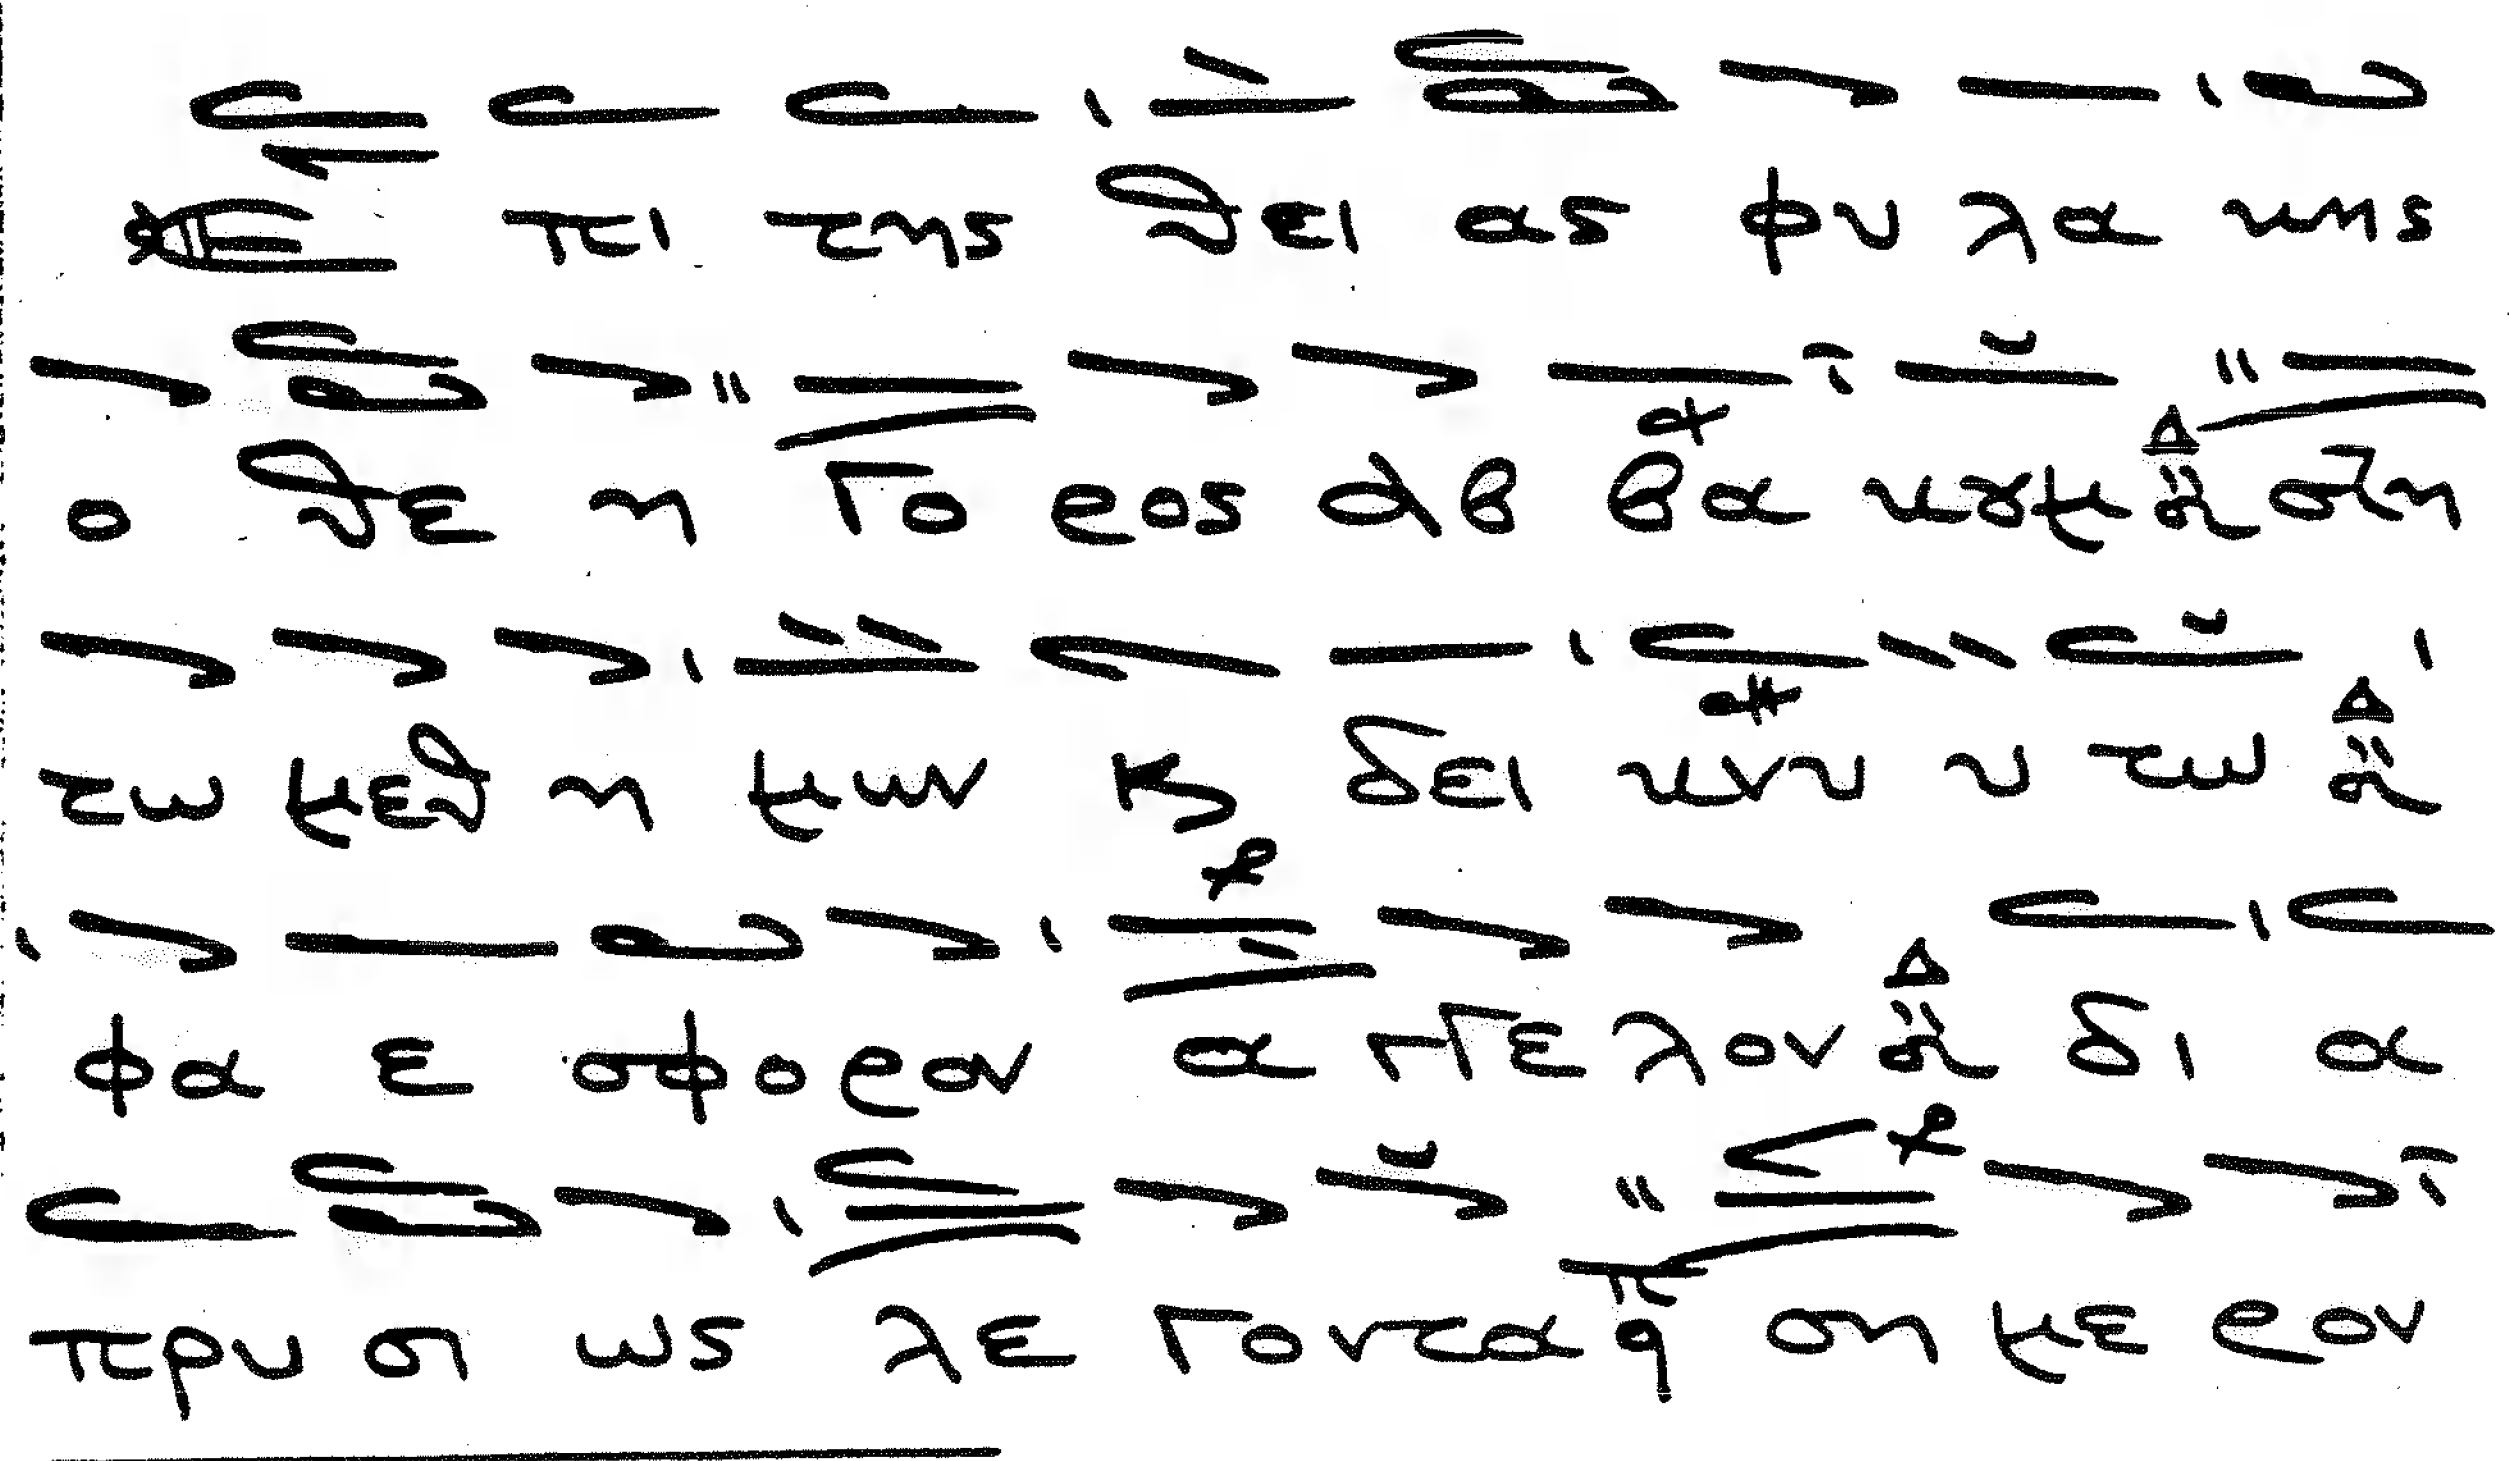 Ε πι της θει ας φυ λα κης
ο θε η γο ρος αβ βα κȣμ στη
τω μεθ η μων ϗ δει κνυ υ τω
φα ε σφο ρον αγ γε λον δι α
πρυ σι ως λε γοντα ση με ρον